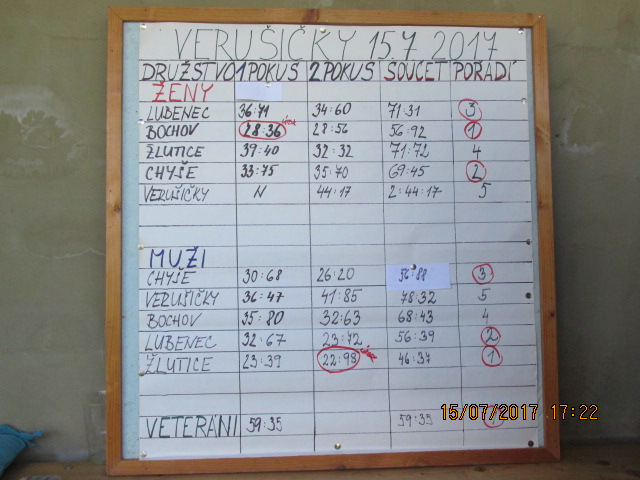 VERUŠIČKY 15.7. 2017
DRUŽSTVO 1 POKUS 2 POKUS SOUČET POŘADÍ
ŽENY
LUBENEC 36:71 34:60 71:31 3
BOCHOV 28:36 28:56 56:92 1
ŽLUTICE 39:40 32:32 71:72 4
CHYŠE 33:75 35:70 69:45 2
VERUŠIČKY N 44:17 2:44:17 5
MUŽI
CHYŠE 30:68 26:20 56:88 3
VERUŠIČKY 36:47 41:85 78:32 5
BOCHOV 35:80 32:63 68:43 4
LUBENEC 32:67 23:72 56:39 2
ŽLUTICE 23:39 22:98 46:37 1
VETERÁNI 59:35 59:35 1
15/07/2017 17:22